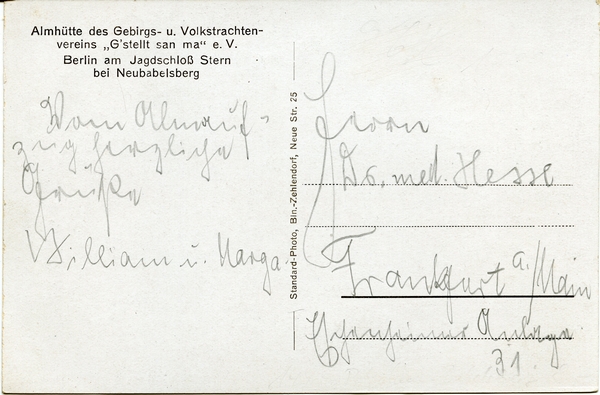 Almhütte des Gebirgs- u. Volkstrachten-
vereins „G'stellt san ma" e. V.
Berlin am Jagdschloß Stern
bei Neubabelsberg
Vom Almauf-
zug herzliche
Grüße
William u. Marga
Standard-Photo, Bln.-Zehlendorf, Neue Str. 25
Herrn
Dr. med. Hesse
Frankfurt a/Main
Eschenheimer Anlage
31.